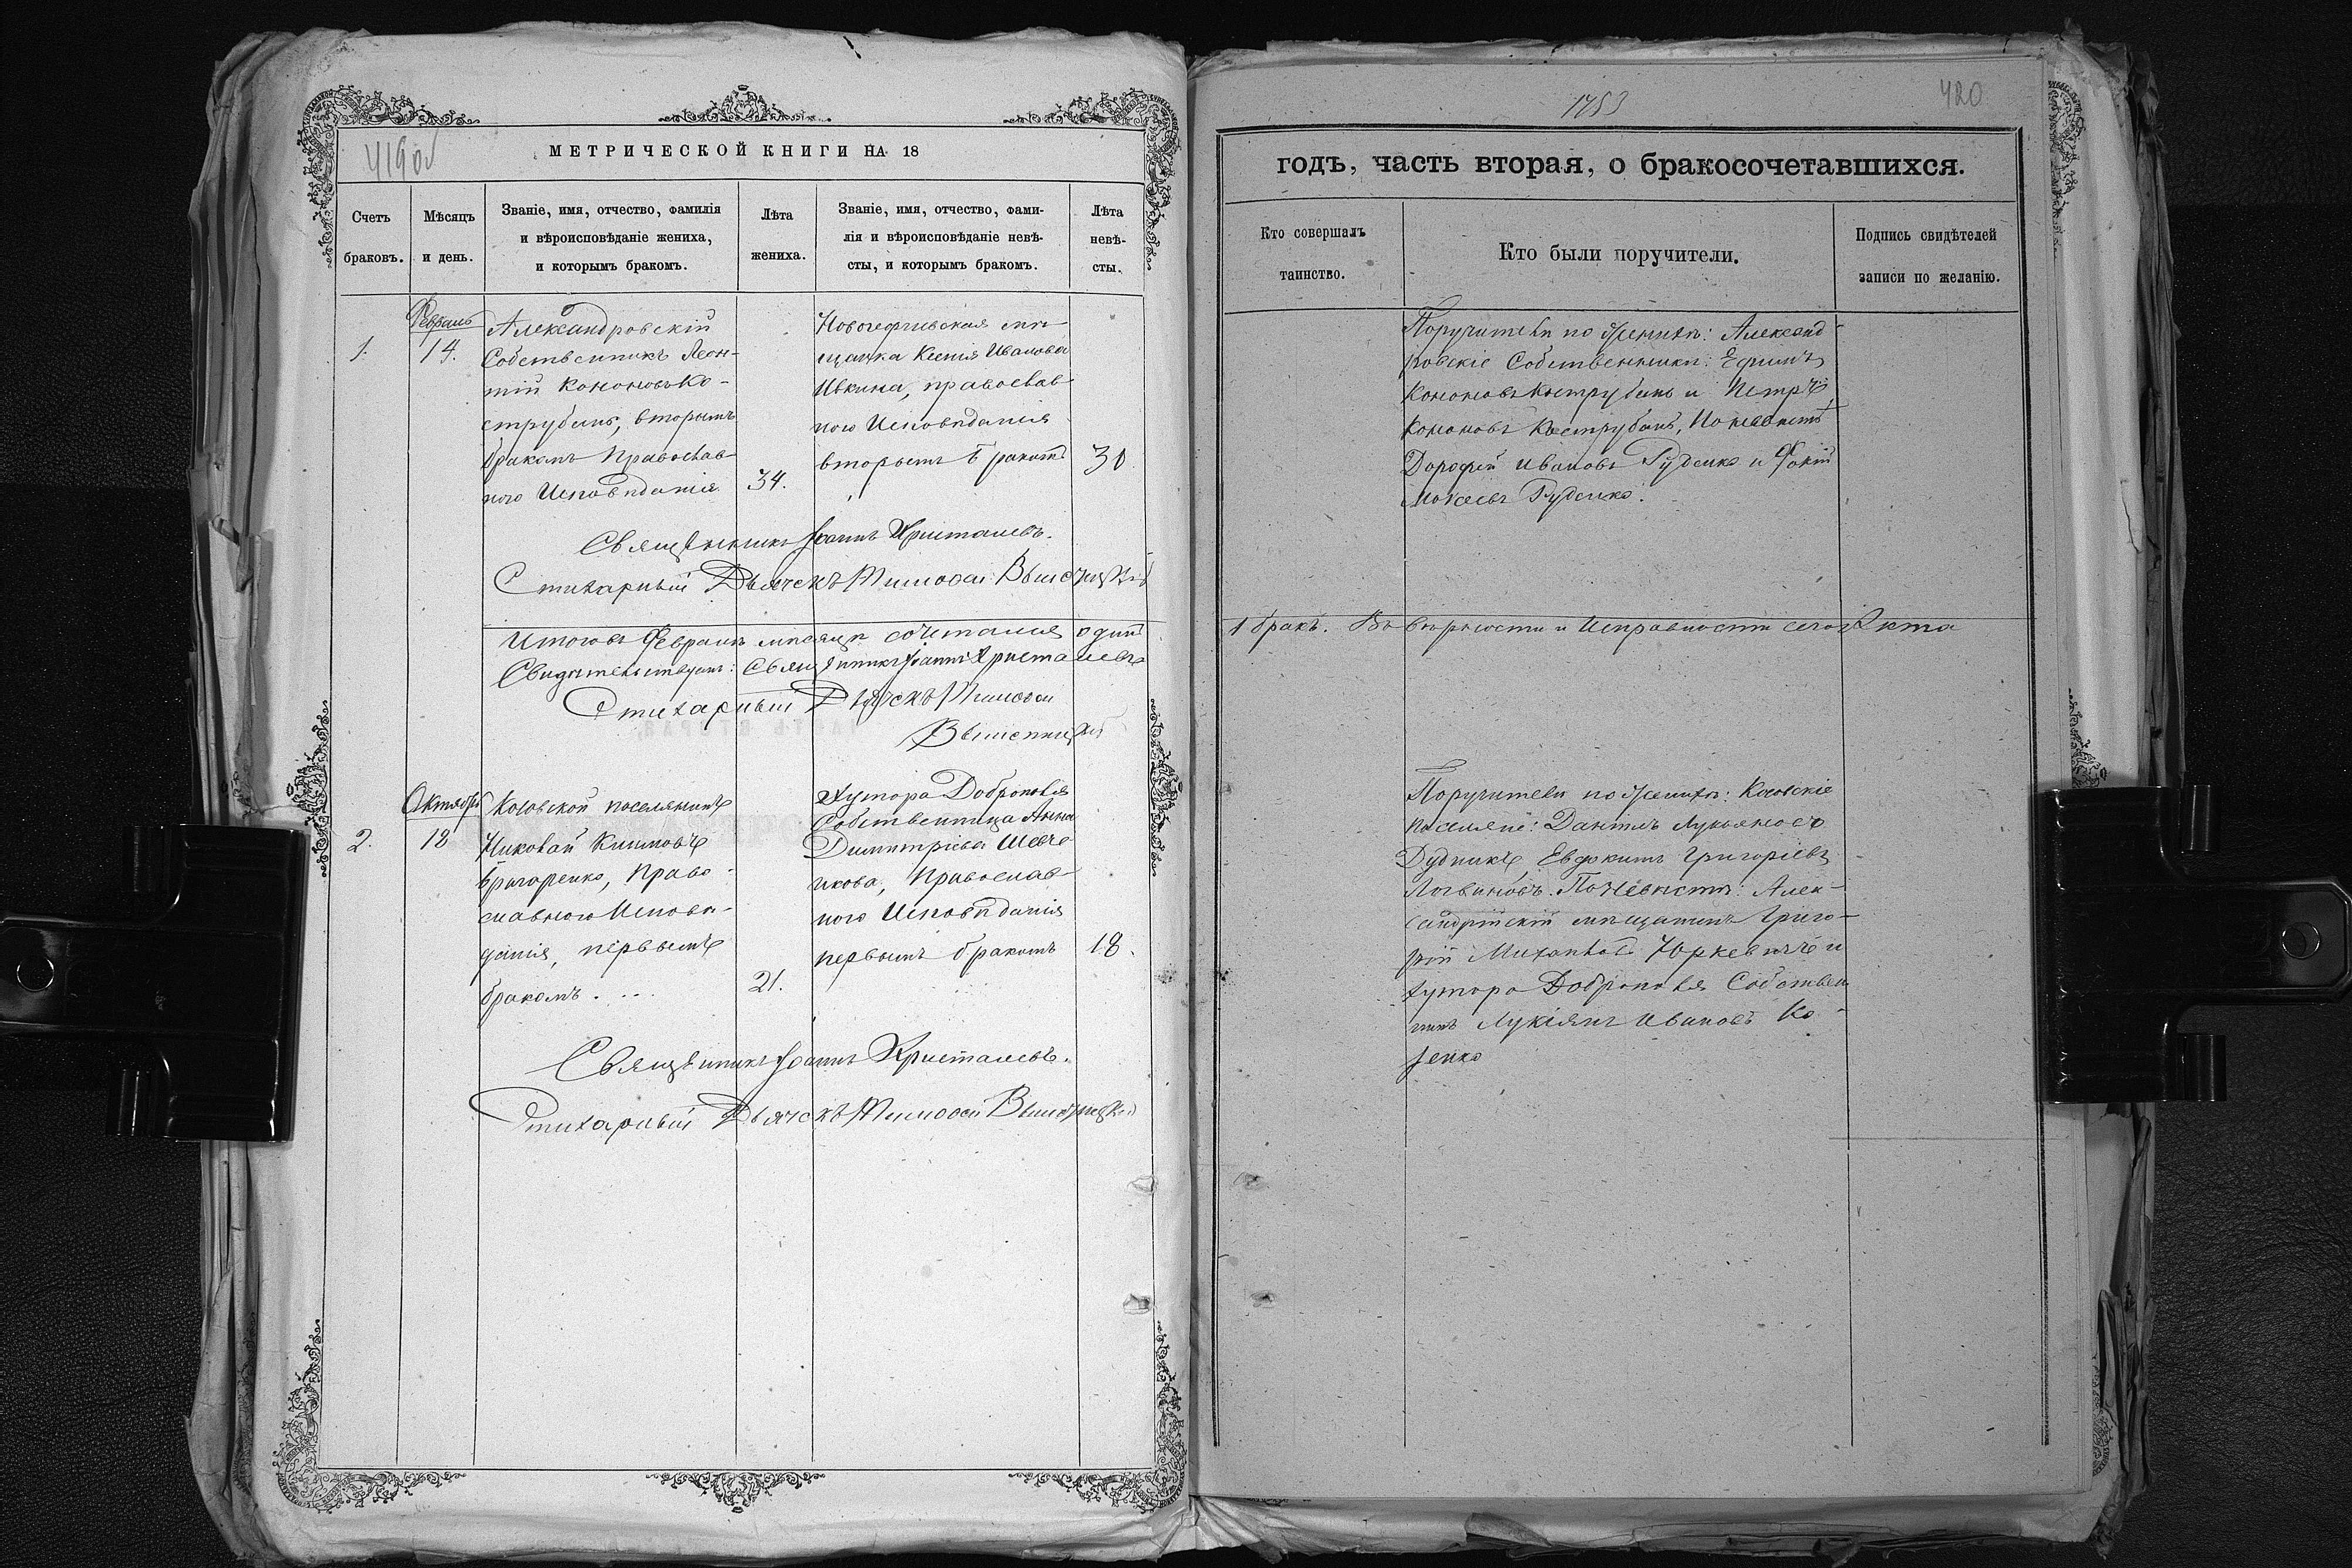 419об
МЕТРИЧЕСКОЙ КНИГИ НА 18
Счетъ браковъ.
Мѣсяцъ и день.
Званіе, имя, отчество, фамилія
и вѣроисповѣданіе жениха,
и которымъ бракомъ.
Лѣта жениха.
Званіе, имя, отчество, фами-
лія и вѣроисповѣданіе невѣ-
сты, и которымъ бракомъ.
Лѣта невѣ-
сты.
1.
Февраль
14.
Александровскій
Собственникъ Леон-
тій Кононовъ Ко-
струбинъ, вторымъ
бракомъ Православ-
ного Исповѣданія
34.
Новогеоргіевская мѣ-
щанка Ксенія Иванова
Ивкина, православ-
ного Исповѣданія
вторымъ бракомъ
30
Священникъ Іоаннъ Христалевъ.
Стихарный Дьячекъ Тимоѳей
Итого въ Февралѣ мѣсяцѣ сочетанія одинъ
Свидѣтельствуемъ: Священникъ Іоаннъ Христалевъ
Стихарный Дьячекъ Тимоѳей
2.
Октябрь
18
поселянинъ
Николай Климовъ
Григоренко, Право-
славного Исповѣ-
данія, первымъ
бракомъ....
21.
Хутора Доброполя
Собственница Анна
Димитріева Шевче-
нкова, Православ-
ного Исповѣданія
первымъ бракомъ
18.
Священникъ Іоаннъ Христалевъ.
Стихарный Дьячекъ Тимоѳей
1753
420
годъ, часть вторая, о бракосочетавшихся.
Кто совершалъ
таинство.
Кто были поручители.
Подпись свидѣтелей
записи по желанію.
Поручители по Женихѣ: Александ-
ровскіе Собственники: Ефимъ
Кононовъ Кострубинъ и Петръ
Кононовъ Кострубинъ, По невѣстѣ
Дорофей Ивановъ Руденко и Фокій
Мокеевъ Руденко.
1 бракъ. Въ вѣрности и Исправности сего Акта
Поручители по Женихѣ:
поселяне: Даніилъ Лукьяновъ
Дудникъ Евдокимъ Григоріевъ
Логвиновъ. По Невѣстѣ: Алек-
сандрійскій мѣщанинъ Григо-
рій Михайловъ Юркевичъ и
хутора Доброполя Собствен
никъ Лукіянъ Ивановъ Ко-
зенко